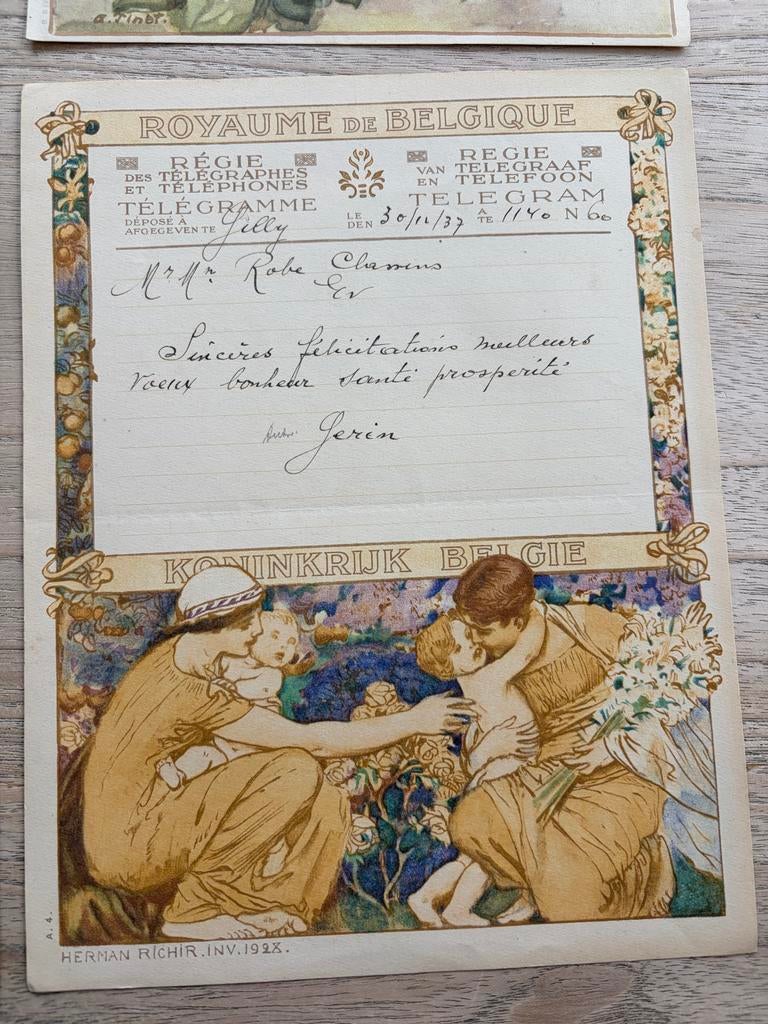 A. Tinbt.
ROYAUME DE BELGIQUE
RÉGIE
DES TÉLÉGRAPHES
ET TÉLÉPHONES
TÉLÉGRAMME
REGIE
VAN TELEGRAAF
EN TELEFOON
TELEGRAM
DÉPOSÉ À
AFGEGEVEN TE Jilly
LE
DEN 30/11/37 A
TE 1140 N 60
Mr Mr Robe
Sincères félicitations meilleurs
voeux bonheur santé prosperité
Gerin
KONINKRIJK BELGIE
A. 4.
HERMAN RICHIR. INV. 1928.